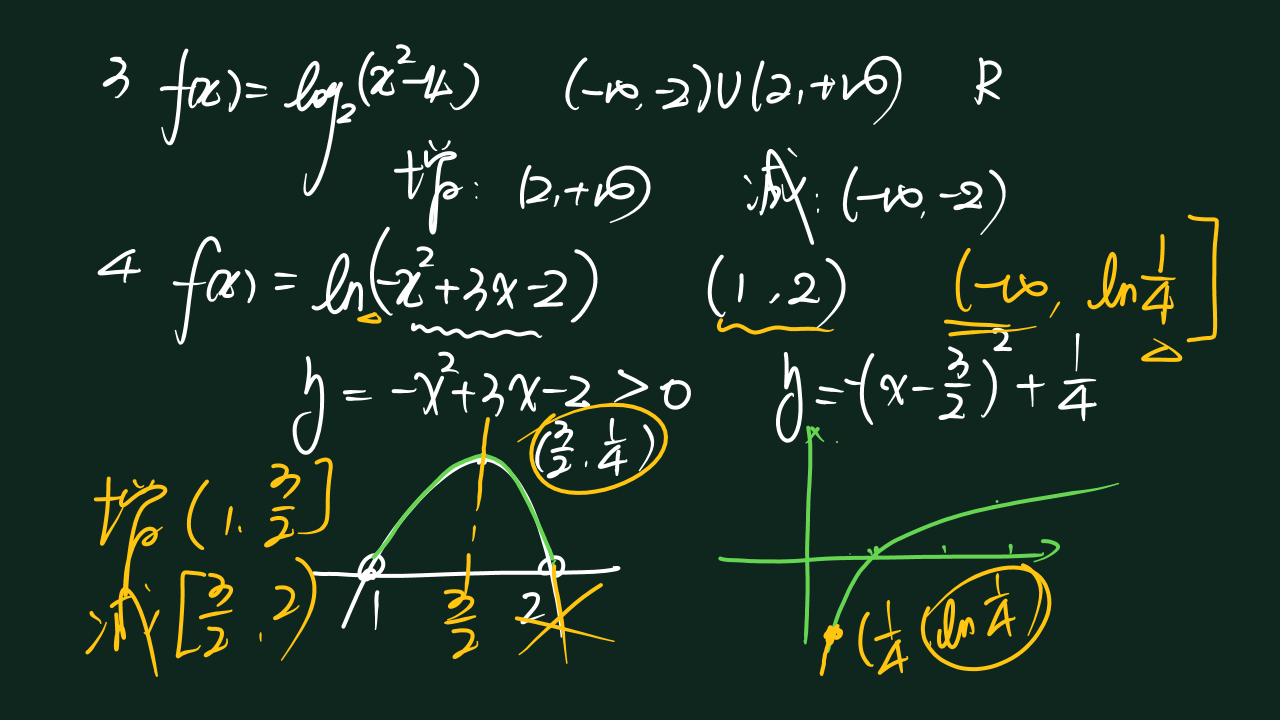 3 f(x) = log₂(x²-4) (-∞,-2)∪(2,+∞) R
增: (2,+∞) 减: (-∞,-2)
4 f(x) = ln(-x²+3x-2) (1,2) (-∞, ln 1/4]
y = -x²+3x-2 > 0 y = -(x-3/2)² + 1/4
(3/2, 1/4)
增 (1, 3/2]
减 [3/2, 2)
1 3/2 2
(1/4 ln 1/4)